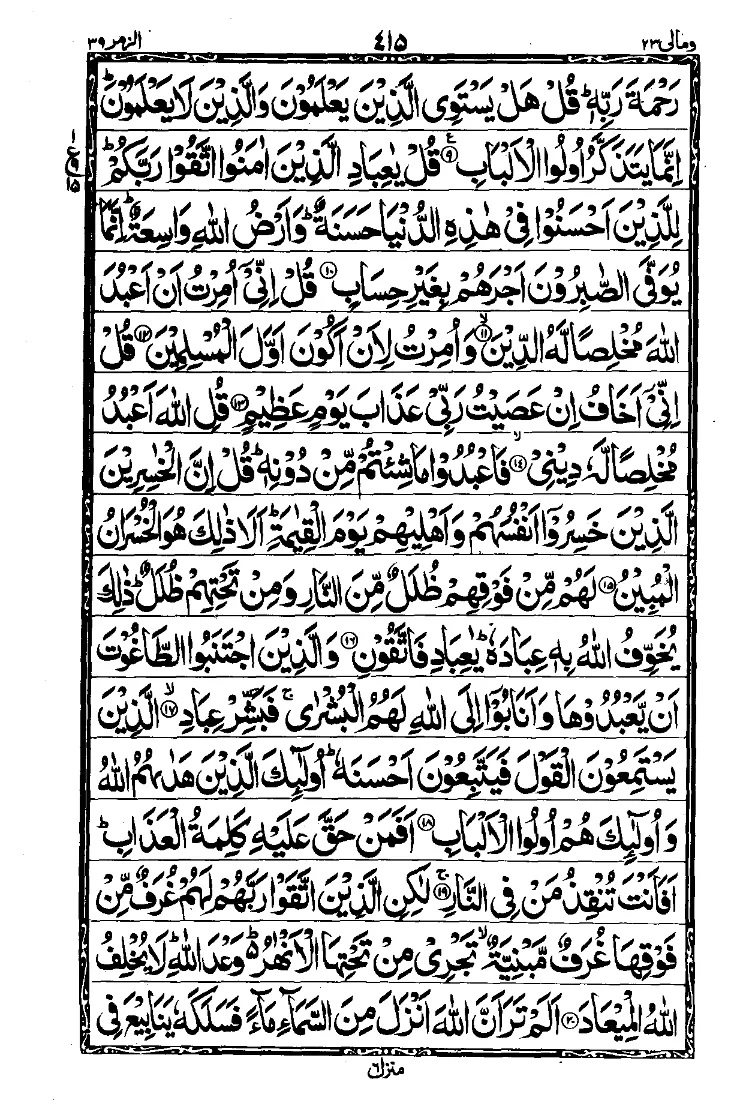 ومالی ۲۳ ۴۱۵ الزمر ۳۹
رَحْمَةَ رَبِّهٖ ؕ قُلْ هَلْ يَسْتَوِى الَّذِيْنَ يَعْلَمُوْنَ وَالَّذِيْنَ لَا يَعْلَمُوْنَ ؕ
اِنَّمَا يَتَذَكَّرُ اُولُوا الْاَلْبَابِ ۹ ع قُلْ يٰعِبَادِ الَّذِيْنَ اٰمَنُوا اتَّقُوْا رَبَّكُمْ ؕ
لِلَّذِيْنَ اَحْسَنُوْا فِىْ هٰذِهِ الدُّنْيَا حَسَنَةٌ ؕ وَاَرْضُ اللّٰهِ وَاسِعَةٌ ؕ اِنَّمَا
يُوَفَّى الصّٰبِرُوْنَ اَجْرَهُمْ بِغَيْرِ حِسَابٍ ۱۰ قُلْ اِنِّىْۤ اُمِرْتُ اَنْ اَعْبُدَ
اللّٰهَ مُخْلِصًا لَّهُ الدِّيْنَ ۱۱ ۙ وَاُمِرْتُ لِاَنْ اَكُوْنَ اَوَّلَ الْمُسْلِمِيْنَ ۱۲ قُلْ
اِنِّىْۤ اَخَافُ اِنْ عَصَيْتُ رَبِّىْ عَذَابَ يَوْمٍ عَظِيْمٍ ۱۳ قُلِ اللّٰهَ اَعْبُدُ
مُخْلِصًا لَّهٗ دِيْنِىْ ۱۴ ۙ فَاعْبُدُوْا مَا شِئْتُمْ مِّنْ دُوْنِهٖ ؕ قُلْ اِنَّ الْخٰسِرِيْنَ
الَّذِيْنَ خَسِرُوْۤا اَنْفُسَهُمْ وَاَهْلِيْهِمْ يَوْمَ الْقِيٰمَةِ ؕ اَلَا ذٰلِكَ هُوَ الْخُسْرَانُ
الْمُبِيْنُ ۱۵ لَهُمْ مِّنْ فَوْقِهِمْ ظُلَلٌ مِّنَ النَّارِ وَمِنْ تَحْتِهِمْ ظُلَلٌ ؕ ذٰلِكَ
يُخَوِّفُ اللّٰهُ بِهٖ عِبَادَهٗ ؕ يٰعِبَادِ فَاتَّقُوْنِ ۱۶ وَالَّذِيْنَ اجْتَنَبُوا الطَّاغُوْتَ
اَنْ يَّعْبُدُوْهَا وَاَنَابُوْۤا اِلَى اللّٰهِ لَهُمُ الْبُشْرٰى ۚ فَبَشِّرْ عِبَادِ ۱۷ ۙ الَّذِيْنَ
يَسْتَمِعُوْنَ الْقَوْلَ فَيَتَّبِعُوْنَ اَحْسَنَهٗ ؕ اُولٰٓئِكَ الَّذِيْنَ هَدٰىهُمُ اللّٰهُ
وَاُولٰٓئِكَ هُمْ اُولُوا الْاَلْبَابِ ۱۸ اَفَمَنْ حَقَّ عَلَيْهِ كَلِمَةُ الْعَذَابِ ؕ
اَفَاَنْتَ تُنْقِذُ مَنْ فِى النَّارِ ۱۹ ۚ لٰكِنِ الَّذِيْنَ اتَّقَوْا رَبَّهُمْ لَهُمْ غُرَفٌ مِّنْ
فَوْقِهَا غُرَفٌ مَّبْنِيَّةٌ ۙ تَجْرِىْ مِنْ تَحْتِهَا الْاَنْهٰرُ ؕ وَعْدَ اللّٰهِ ؕ لَا يُخْلِفُ
اللّٰهُ الْمِيْعَادَ ۲۰ اَلَمْ تَرَ اَنَّ اللّٰهَ اَنْزَلَ مِنَ السَّمَآءِ مَآءً فَسَلَكَهٗ يَنَابِيْعَ فِى
منزل ۶